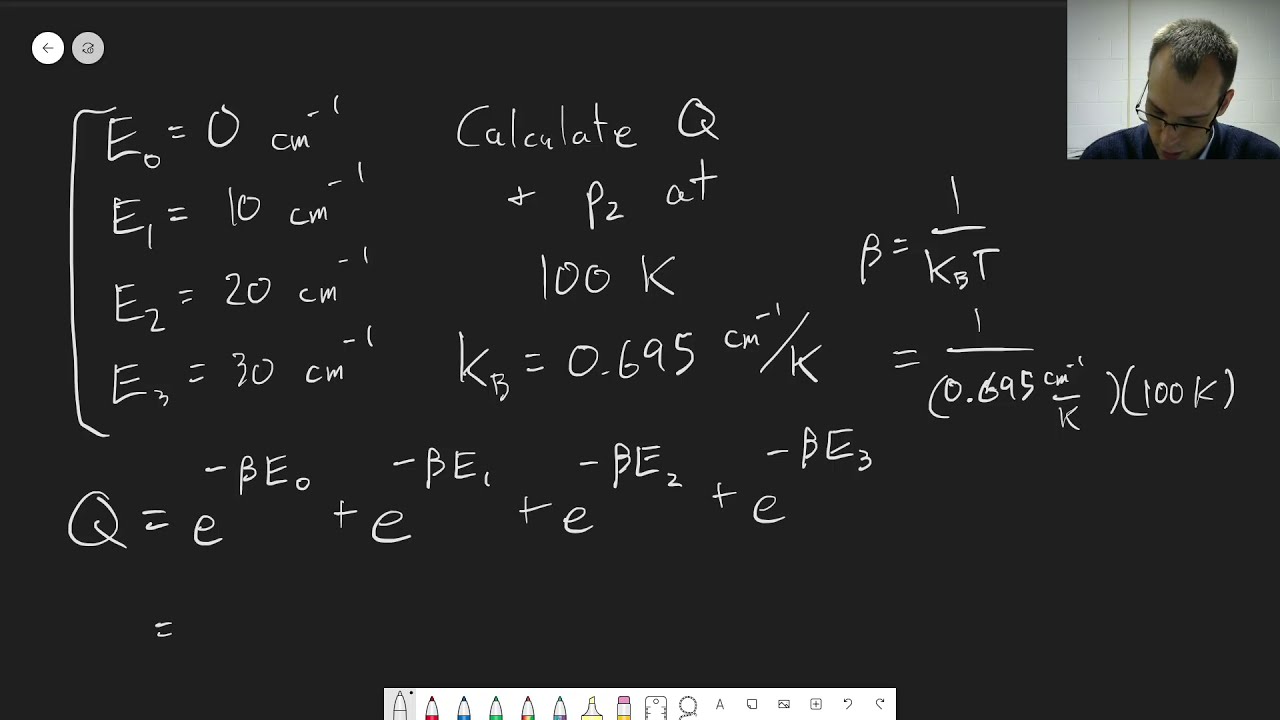 E₀ = 0 cm⁻¹
E₁ = 10 cm⁻¹
E₂ = 20 cm⁻¹
E₃ = 30 cm⁻¹
Calculate Q
+ p₂ at
100 K
k_B = 0.695 cm⁻¹/K
β = 1/(k_B T)
= 1/((0.695 cm⁻¹/K)(100 K))
Q = e^(-βE₀) + e^(-βE₁) + e^(-βE₂) + e^(-βE₃)
=
A